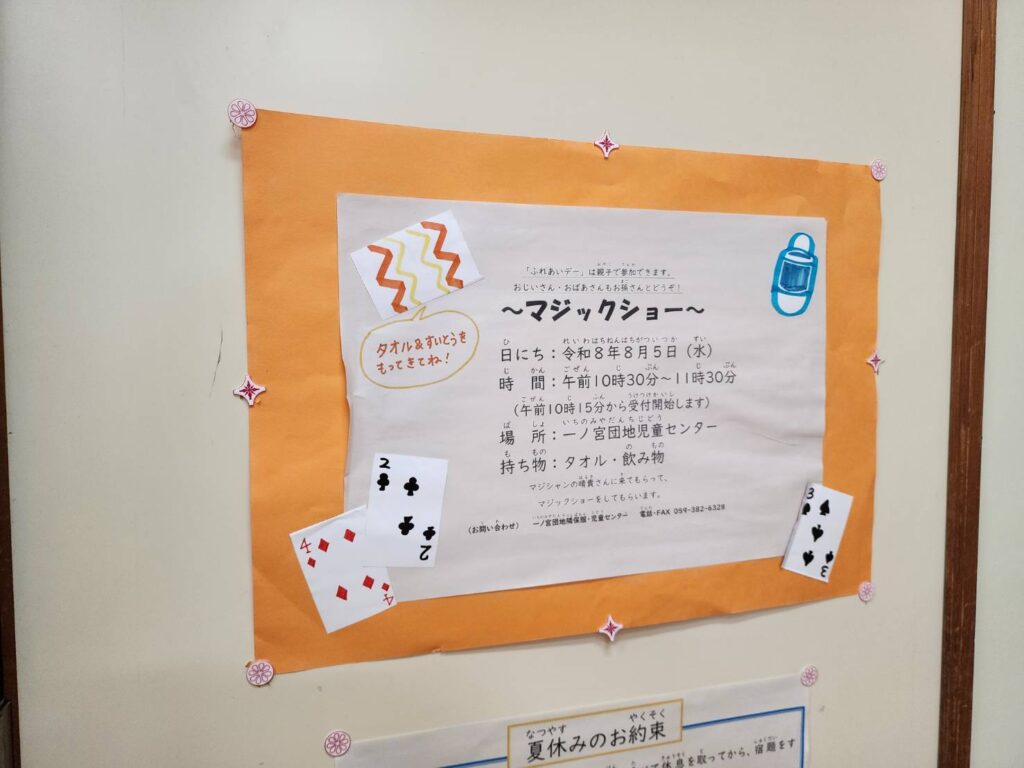 「ふれあいデー」は親子で参加できます。
おじいさん・おばあさんもお孫さんとどうぞ！
～マジックショー～
タオル&すいとうを
もってきてね！
日にち：令和8年8月5日（水）
時　間：午前10時30分～11時30分
（午前10時15分から受付開始します）
場　所：一ノ宮団地児童センター
持ち物：タオル・飲み物
マジシャンの晴貴さんに来てもらって、
マジックショーをしてもらいます。
（お問い合わせ）　一ノ宮団地隣保館・児童センター　電話・FAX 059-382-6328
2
2
4
4
3
3
なつやす　やくそく
夏休みのお約束
休息を取ってから、宿題をす